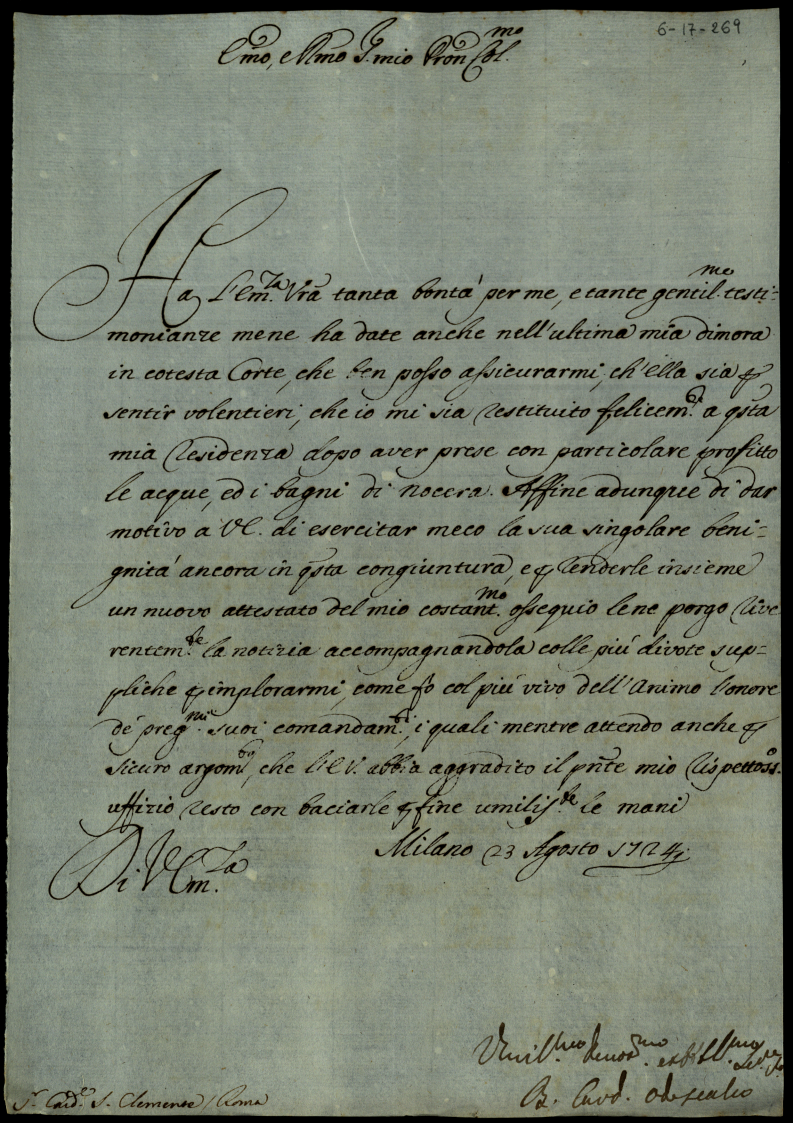 6-17-269
Emo, e Rmo S. mio Pron Col.mo
Ha l'Em.za Vra tanta bontà per me, e tante gentil.me testi=
monianze mene ha date anche nell'ultima mia dimora
in cotesta Corte, che ben posso assicurarmi, ch'ella sia p
sentir volentieri, che io mi sia restituito felicem.te a qsta
mia Residenza dopo aver prese con particolare profitto
le acque, ed i bagni di nocera. Affine adunque di dar
motivo a VE. di esercitar meco la sua singolare beni=
gnità ancora in qsta congiuntura, e p renderle insieme
un nuovo attestato del mio costant.mo ossequio lene porgo rive
rentem.te la notizia accompagnandola colle più divote sup=
pliche p implorarmi, come fò col più vivo dell'Animo l'onore
de' preg.mi suoi comandam.ti, i quali mentre attendo anche p
sicuro argom.to, che l'E V. abbia aggradito il pnte mio rispettoss.o
uffizio resto con baciarle p fine umiliss.te le mani
Milano 23 Agosto 1724
Di V Em.za
Umil.mo Devot.mo
B. Card. Odescalco
S.r Card.e S. Clemente / Roma